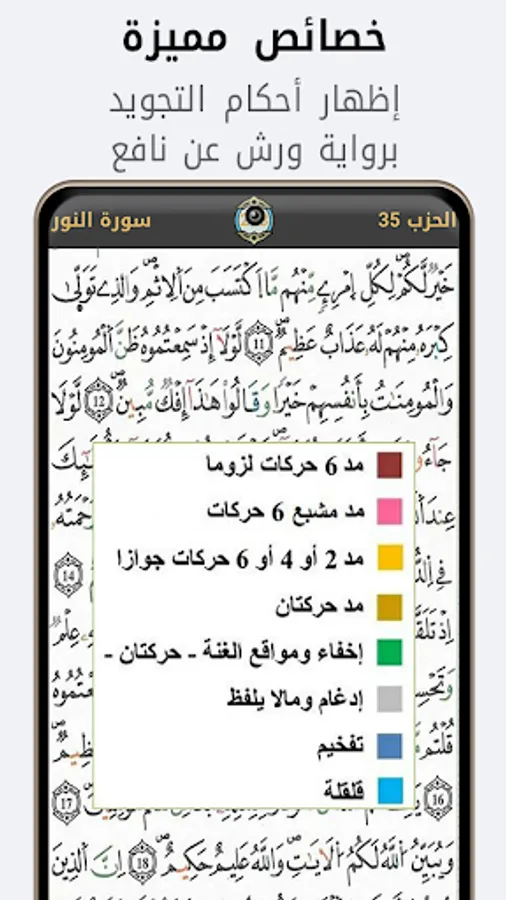 خصائص مميزة
إظهار أحكام التجويد
برواية ورش عن نافع
الحزب 35
سورة النور
خَيْرٌ لَّكُمْ لِكُلِّ اِمْرِےٕٖ مِّنْهُم مَّا اَكْتَسَبَ مِنَ اَلِاثْمِ وَالذِے تَوَلّ۪ىٰ
كِبْرَهُۥ مِنْهُمْ لَهُۥ عَذَابٌ عَظِيمٌ 11 لَّوْلَآ إِذْ سَمِعْتُمُوهُ ظَنَّ اَلْمُومِنُونَ
وَالْمُومِنَٰتُ بِأَنفُسِهِمْ خَيْراً وَقَالُواْ هَٰذَآ إِفْكٌ مُّبِينٌ 12 لَّوْلَا
جَآءُو
مد 6 حركات لزوما
مد مشبع 6 حركات
عِندَ
مد 2 أو 4 أو 6 حركات جوازا
فِے
14
مد حركتان
إِذْ تَلَقَّ
عِلْمٌ
إخفاء ومواقع الغنة - حركتان -
إدغام ومالا يلفظ
وَتَحْسِ
سَمِعْتُمُوهُ
تفخيم
قُلْتُم
عَظِيمٌ
قلقلة
16
17
وَيُبَيِّنُ اُللَّهُ لَكُمُ اُلَايَٰتِ وَاللَّهُ عَلِيمٌ حَكِيمٌ 18 اِنَّ اَلذِينَ